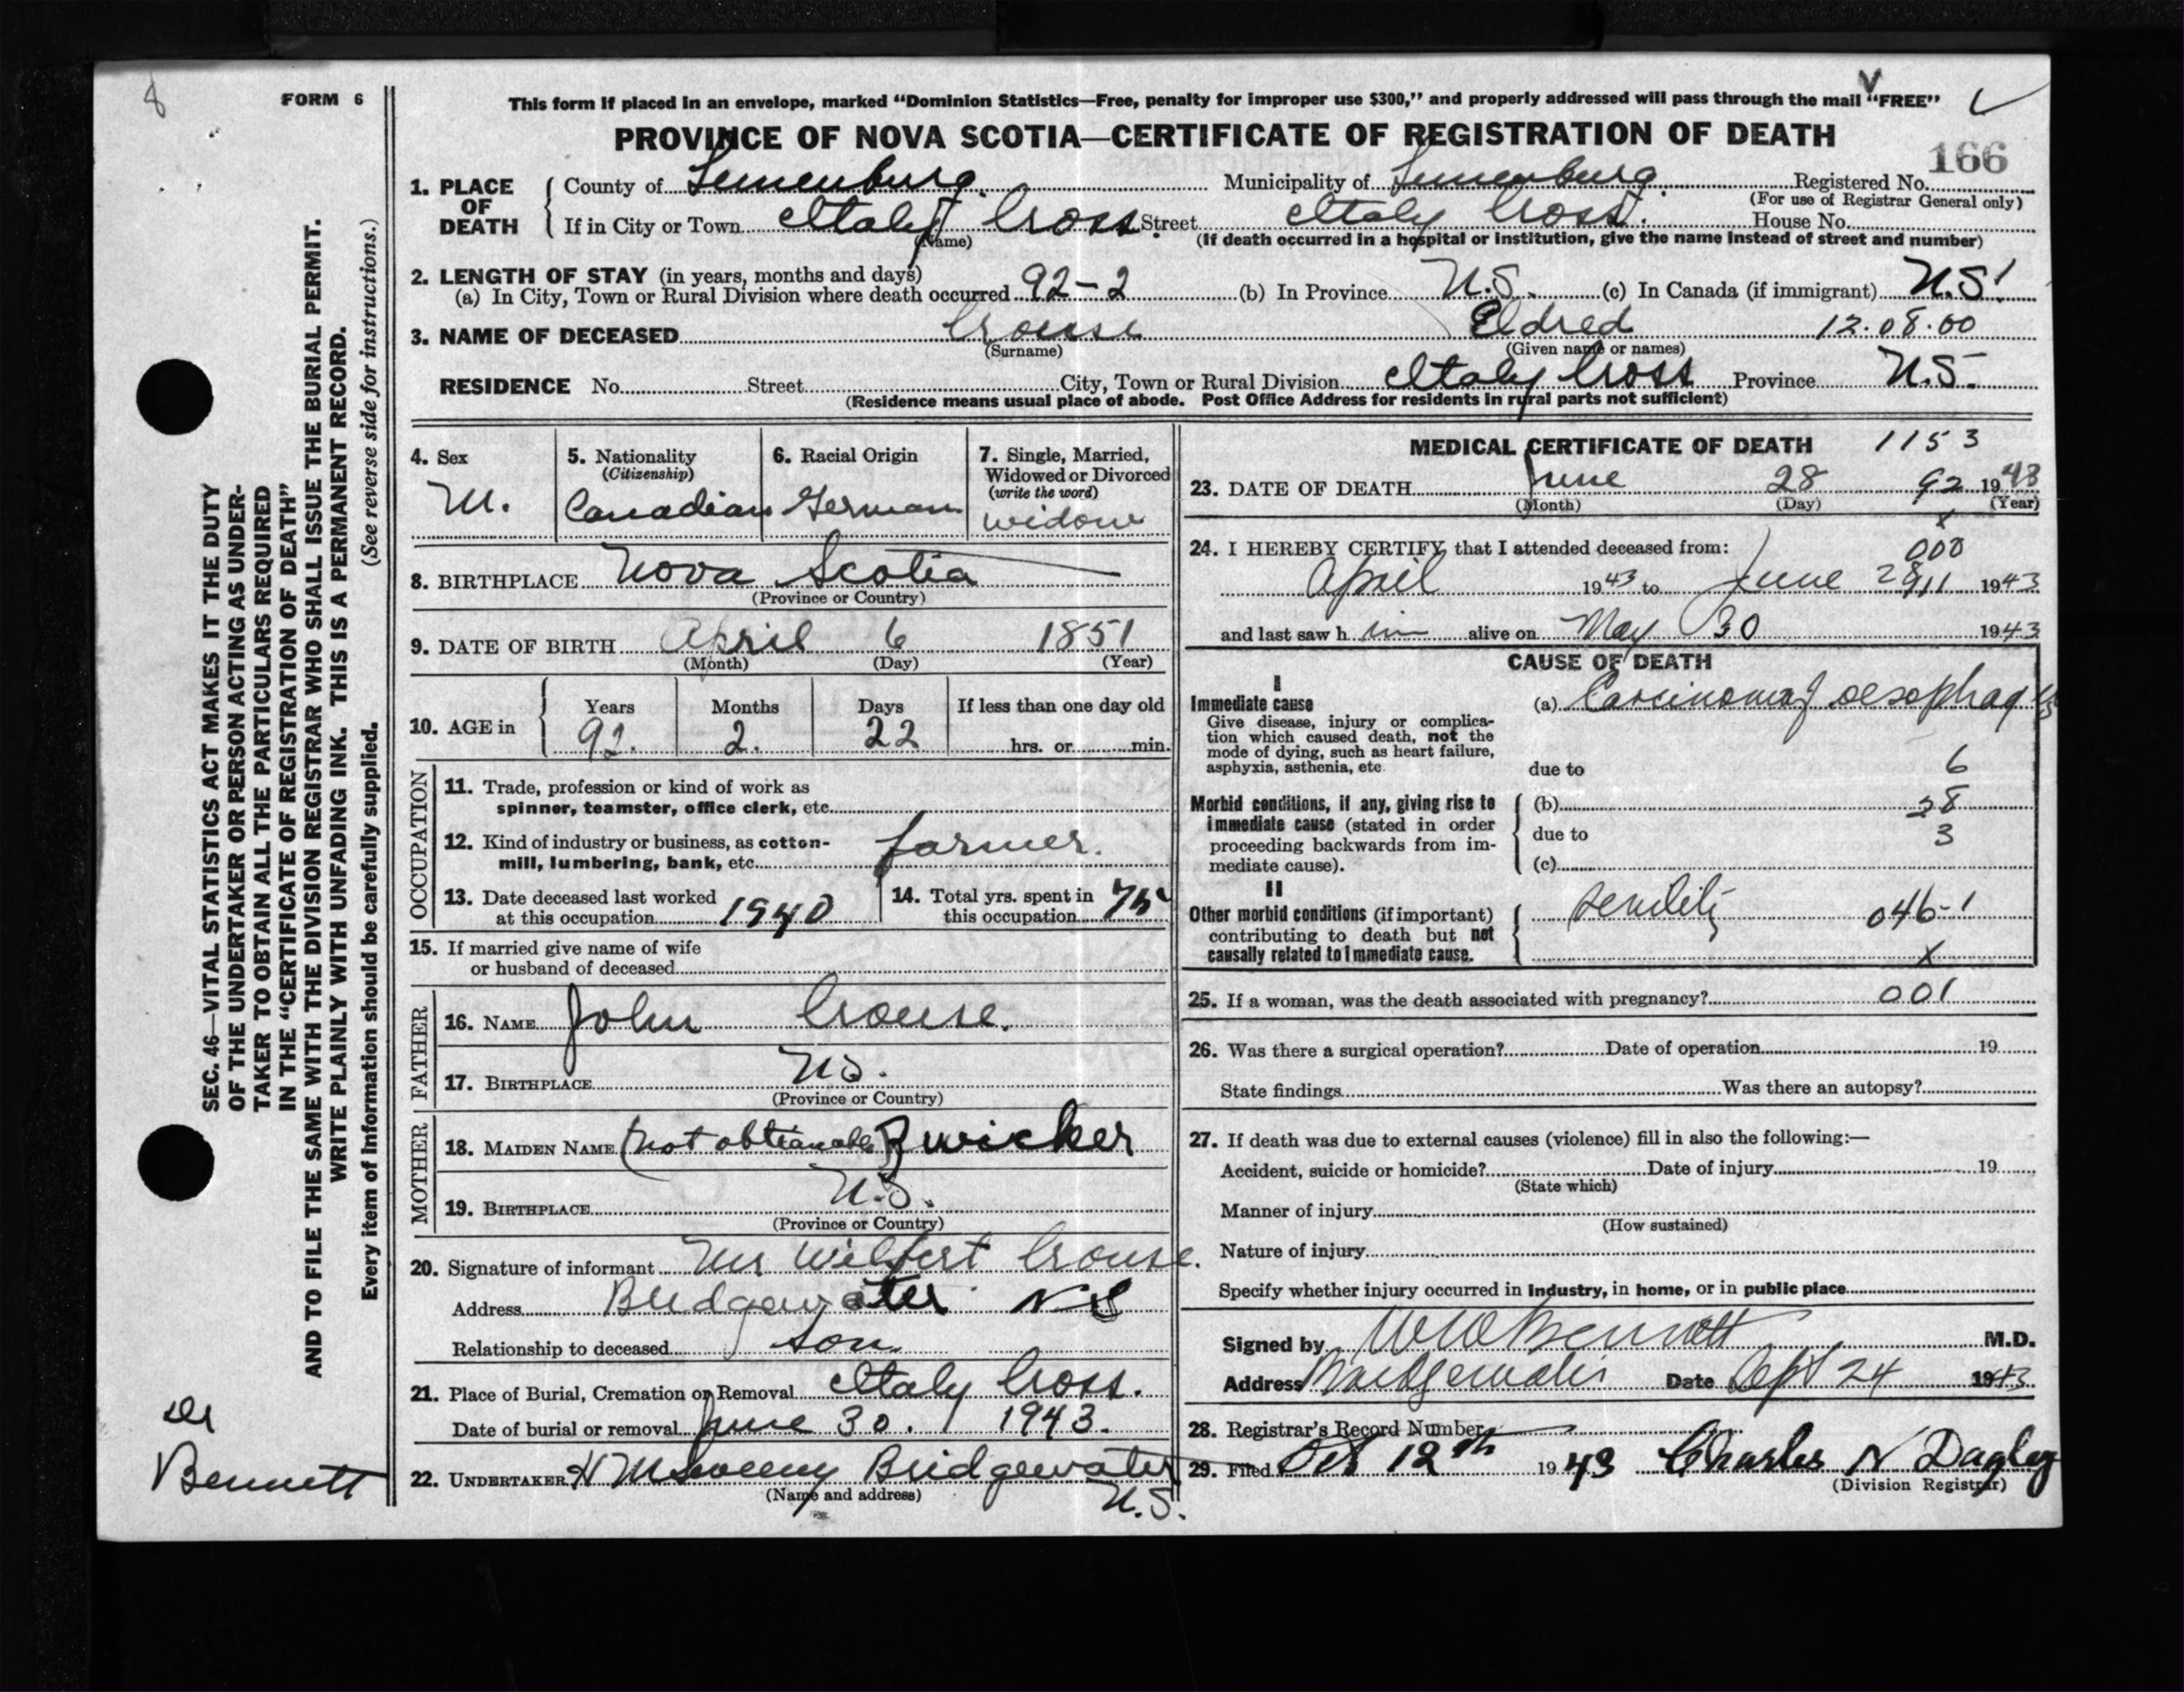 8
FORM 6
This form if placed in an envelope, marked "Dominion Statistics—Free, penalty for improper use $300," and properly addressed will pass through the mail "FREE"
PROVINCE OF NOVA SCOTIA—CERTIFICATE OF REGISTRATION OF DEATH
166
1. PLACE OF DEATH County of Lunenburg. Municipality of Lunenburg. Registered No.
(For use of Registrar General only)
If in City or Town Italy Cross Street Italy Cross. House No.
(Name) (If death occurred in a hospital or institution, give the name instead of street and number)
2. LENGTH OF STAY (in years, months and days)
(a) In City, Town or Rural Division where death occurred 92-2 (b) In Province N.S. (c) In Canada (if immigrant) N.S.
3. NAME OF DECEASED Crouse Eldred 12.08.00
(Surname) (Given name or names)
RESIDENCE No. Street City, Town or Rural Division Italy Cross Province N.S.
(Residence means usual place of abode. Post Office Address for residents in rural parts not sufficient)
4. Sex
M.
5. Nationality
(Citizenship)
Canadian
6. Racial Origin
German
7. Single, Married,
Widowed or Divorced
(write the word)
widow
8. BIRTHPLACE Nova Scotia
(Province or Country)
9. DATE OF BIRTH April 6 1851
(Month) (Day) (Year)
10. AGE in Years Months Days If less than one day old
92. 2. 22 hrs. or min.
OCCUPATION
11. Trade, profession or kind of work as
spinner, teamster, office clerk, etc.
12. Kind of industry or business, as cotton-
mill, lumbering, bank, etc. farmer.
13. Date deceased last worked
at this occupation 1940
14. Total yrs. spent in
this occupation 75
15. If married give name of wife
or husband of deceased
FATHER
16. NAME John Crouse.
17. BIRTHPLACE NS.
(Province or Country)
MOTHER
18. MAIDEN NAME (not obtianable) Zwicker
19. BIRTHPLACE N.S.
(Province or Country)
20. Signature of informant Mr Wilbert Crouse.
Address Bridgewater NS
Relationship to deceased son
21. Place of Burial, Cremation or Removal Italy Cross.
Date of burial or removal June 30. 1943.
22. UNDERTAKER McSweeny Bridgewater
(Name and address) N.S.
MEDICAL CERTIFICATE OF DEATH 1153
23. DATE OF DEATH June 28 92 1943
(Month) (Day) (Year)
x
24. I HEREBY CERTIFY that I attended deceased from: 000
April 1943 to June 28 1943
and last saw h im alive on May 30 1943
CAUSE OF DEATH
I
Immediate cause
Give disease, injury or complica-
tion which caused death, not the
mode of dying, such as heart failure,
asphyxia, asthenia, etc.
(a) Carcinoma of oesophagus
due to 6
Morbid conditions, if any, giving rise to
immediate cause (stated in order
proceeding backwards from im-
mediate cause).
(b) 28
due to 3
(c)
II
Other morbid conditions (if important)
contributing to death but not
causally related to immediate cause.
senility 046-1
x
25. If a woman, was the death associated with pregnancy? 001
26. Was there a surgical operation? Date of operation 19
State findings Was there an autopsy?
27. If death was due to external causes (violence) fill in also the following:—
Accident, suicide or homicide? Date of injury 19
(State which)
Manner of injury
(How sustained)
Nature of injury
Specify whether injury occurred in industry, in home, or in public place
Signed by Bennett M.D.
Address Bridgewater Date Sept 24 1943
28. Registrar's Record Number
29. Filed Oct 12th 1943 Charles N Dagley
(Division Registrar)
SEC. 46—VITAL STATISTICS ACT MAKES IT THE DUTY
OF THE UNDERTAKER OR PERSON ACTING AS UNDER-
TAKER TO OBTAIN ALL THE PARTICULARS REQUIRED
IN THE "CERTIFICATE OF REGISTRATION OF DEATH"
AND TO FILE THE SAME WITH THE DIVISION REGISTRAR WHO SHALL ISSUE THE BURIAL PERMIT.
WRITE PLAINLY WITH UNFADING INK. THIS IS A PERMANENT RECORD.
Every item of information should be carefully supplied. (See reverse side for instructions.)
Dr
Bennett